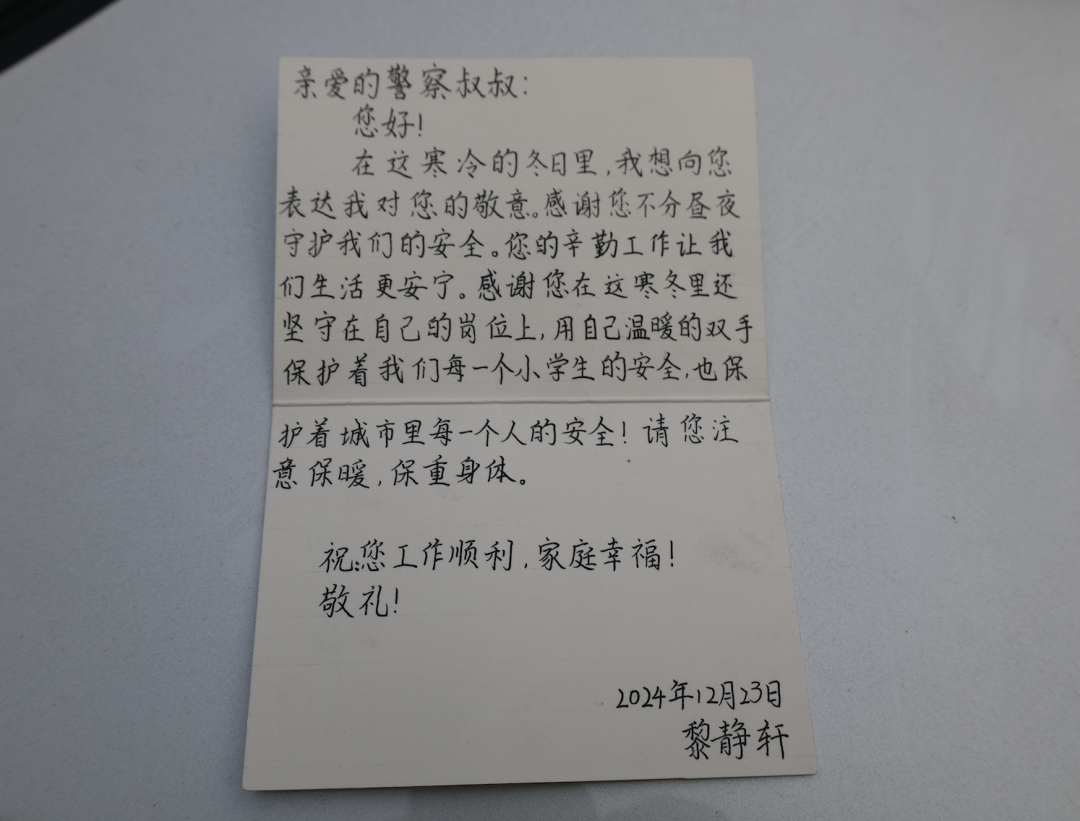 亲爱的警察叔叔：
您好！
在这寒冷的冬日里，我想向您
表达我对您的敬意。感谢您不分昼夜
守护我们的安全。您的辛勤工作让我
们生活更安宁。感谢您在这寒冬里还
坚守在自己的岗位上，用自己温暖的双手
保护着我们每一个小学生的安全，也保
护着城市里每一个人的安全！请您注
意保暖，保重身体。
祝：您工作顺利，家庭幸福！
敬礼！
2024年12月23日
黎静轩